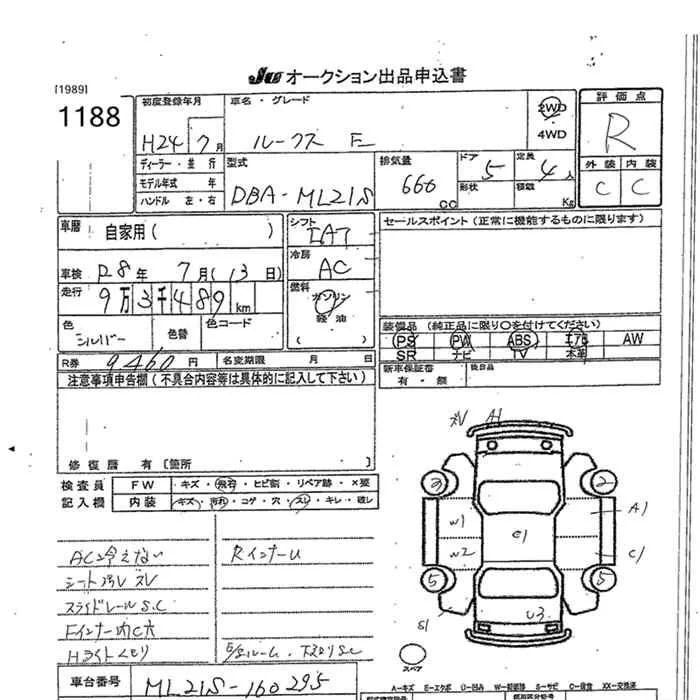 JU オークション出品申込書
[1989]
1188
初度登録年月
車名・グレード
評価点
H24 7月
ルークス E
2WD
4WD
R
ディーラー・並行
型式
排気量
ドア
定員
外装 内装
モデル年式 年
DBA-ML21S
660
CC
5
4人
C C
ハンドル 左・右
形状
積載
Kg
車歴
自家用( )
シフト
IAT
セールスポイント(正常に機能するものに限ります)
冷房
AC
車検 R8年 7月(13日)
走行
9万3千489km
燃料
ガソリン
軽油
色
シルバー
色替
色コード
装備品(純正品に限り○を付けてください)
PS PW ABS エアB AW
SR ナビ TV 本革
R券 9,460円
名変期限 月 日
新車保証書
有・無
後日品
注意事項申告欄(不具合内容等は具体的に記入して下さい)
修復歴 有[箇所
検査員
記入欄
FW
・キズ・飛石・ヒビ割・リペア跡・×要
内装
・キズ・汚れ・コゲ・穴・スレ・キレ・破レ
ACン冷えない
シート汚レ スレ
スライドレールS.C
Fインナー内C大
Hライトくもり
RインナーU
ズレ A1
2 2
W1
A1
C1
W2
C1
5 5
S1
U3
スペア
車台番号
ML21S-160295
A-キズ E-エクボ U-凹み W-補修跡 S-サビ C-腐食 XX-交換済